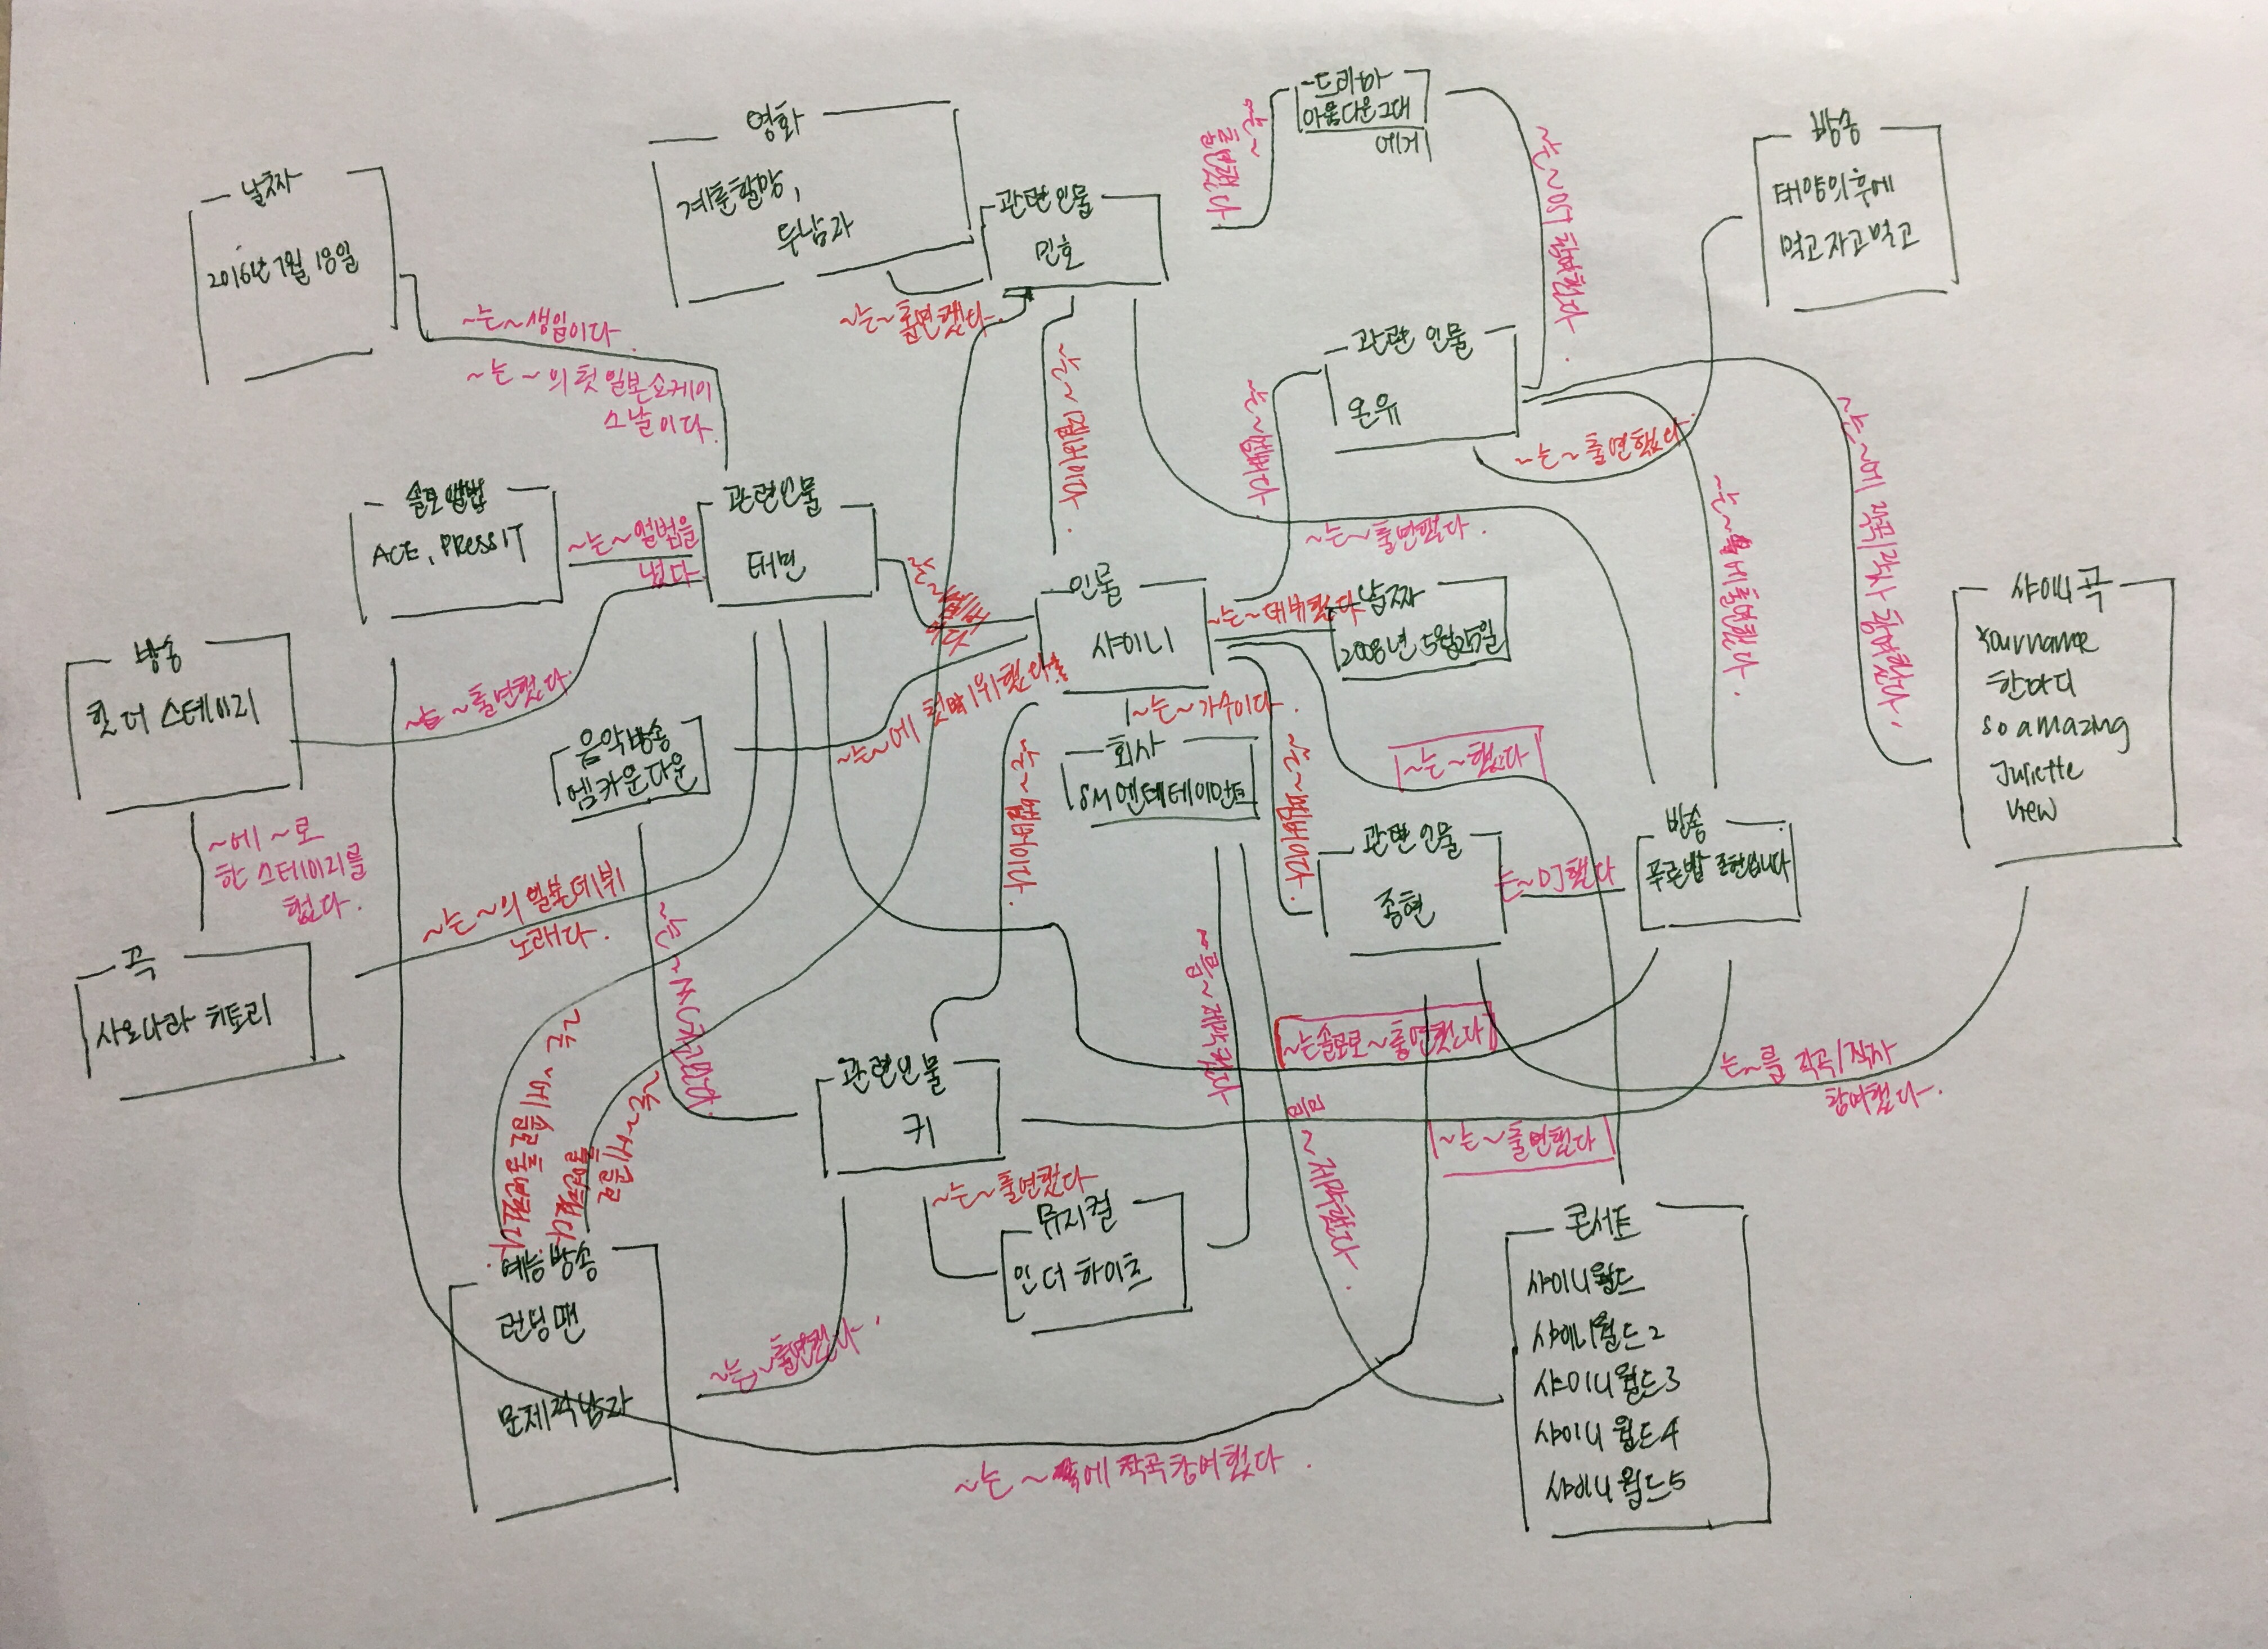 드라마
아름다운그대
에게
~는~
출연했다
영화
계춘할망,
두남자
방송
태양의 후예
먹고자고먹고
날짜
2016년 7월 18일
관련인물
민호
~는~OST 참여했다.
~는~출연했다.
~는~생일이다.
~는~의 첫 일본쇼케이
스날이다.
관련 인물
온유
~는~멤버이다.
~는~멤버다
~는~출연했다.
~는~에 작곡/작사 참여했다.
솔로앨범
ACE, PRESS IT
~는~앨범을
냈다
관련인물
태민
~는~출연했다.
~는~에출연했다.
인물
샤이니
~는~데뷔했다
날짜
2008년 5월25일
샤이니곡
Your name
한마디
so amazing
Juliette
view
방송
힛 더 스테이지
~는~출연했다.
음악방송
엠카운다운
~는~에 첫 1위했다.
~는~가수이다.
회사
SM엔테테이먼트
~는~했다
~는~멤버이다.
~는~멤버이다.
관련인물
종현
는~DJ했다
방송
푸른밤 종현입니다
~에~로
한 스테이지를
했다.
~는~의 일본데뷔
노래다.
곡
사요나라 히토리
~는~MC치고있다.
~는~제작했다
~는솔로로~출연했다
는~를 작곡/작사
참여했다.
관련인물
키
~는~출연했다
~는~에 솔로로 출연했다.
~는~에 솔로
출연했다
~는~출연했다
뮤지컬
인 더 하이츠
~제작했다.
예능방송
런닝맨
문제적남자
~는~출연했다.
콘서트
샤이니월드
샤이니월드2
샤이니월드3
샤이니월드4
샤이니월드5
~는~에 작곡참여했다.